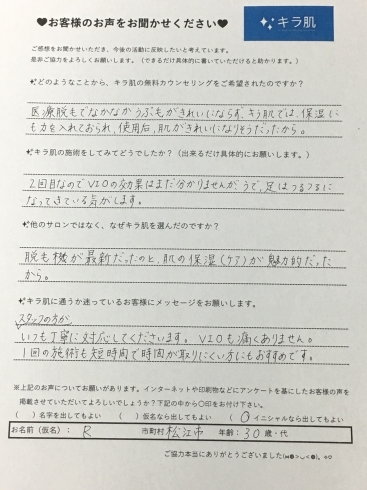 ♥お客様のお声をお聞かせください♥
キラ肌
ご感想をお聞かせいただき、今後の活動に反映したいと考えています。
是非ご協力をよろしくお願いします。(できるだけ具体的に書いていただけると助かります。)
どのようなことから、キラ肌の無料カウンセリングをご希望されたのですか?
医療脱毛でなかなかうぶ毛がきれいにならず、キラ肌では、保湿に
も力を入れておられ、使用后、肌がきれいになりそうだったから。
キラ肌の施術をしてみてどうでしたか?(出来るだけ具体的にお願いします。)
2回目なのでVIOの効果はまだ分かりませんがうで、足はつるつるに
なってきている気がします。
他のサロンではなく、なぜキラ肌を選んだのですか?
脱毛機が最新だったのと、肌の保湿(ケア)が魅力的だった
から。
キラ肌に通うか迷っているお客様にメッセージをお願いします。
スタッフの方が、
いつも丁寧に対応してくださいます。VIOも痛くありません。
1回の施術も短時間で時間が取りにくい方にもおすすめです。
※上記のお声についてお願いがあります。インターネットや印刷物などにアンケートを基にしたお客様の声を
掲載させていただいてよろしいでしょうか?下記の中から〇印をお付け下さい。
( )名字を出してもよい ( )仮名なら出してもよい (○イニシャルなら出してもよい
お名前(仮名): R 市町村 松江市 年齢:30歳・代
ご協力本当にありがとうございました(๑❤>◡<❤)。+o